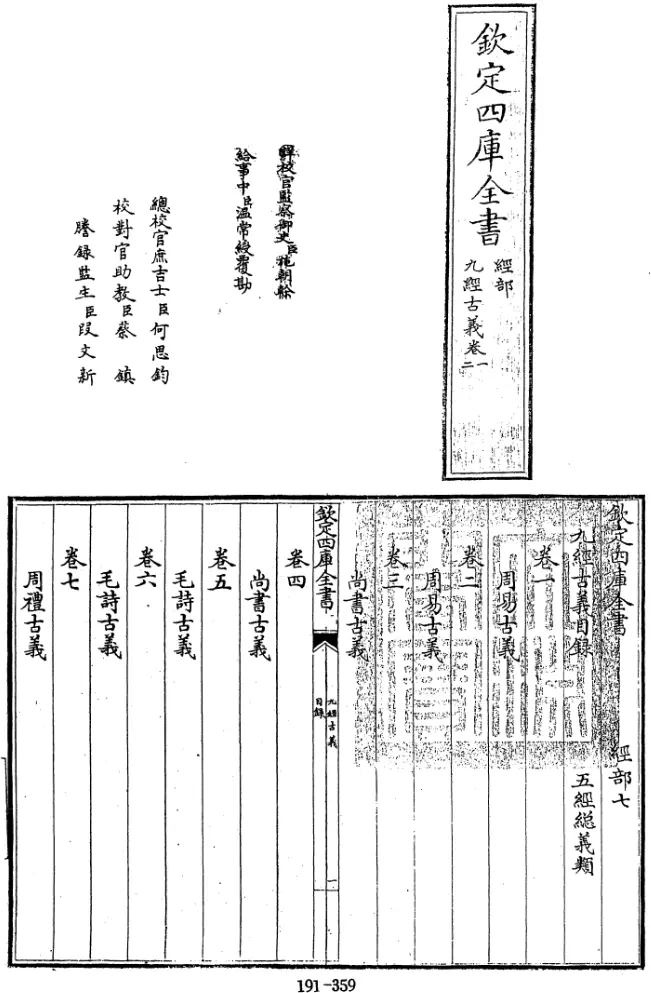 欽定四庫全書
經部
九經古義卷一
二
詳校官監察御史臣范朝榦
給事中臣溫常綬覆勘
總校官庶吉士臣何思鈞
校對官助教臣蔡鎮
謄錄監生臣段文新
欽定四庫全書
經部七
九經古義目錄
五經總義類
卷一
周易古義
卷二
周易古義
卷三
尚書古義
欽定四庫全書
九經古義
目錄
一
卷四
尚書古義
卷五
毛詩古義
卷六
毛詩古義
卷七
周禮古義
191-359